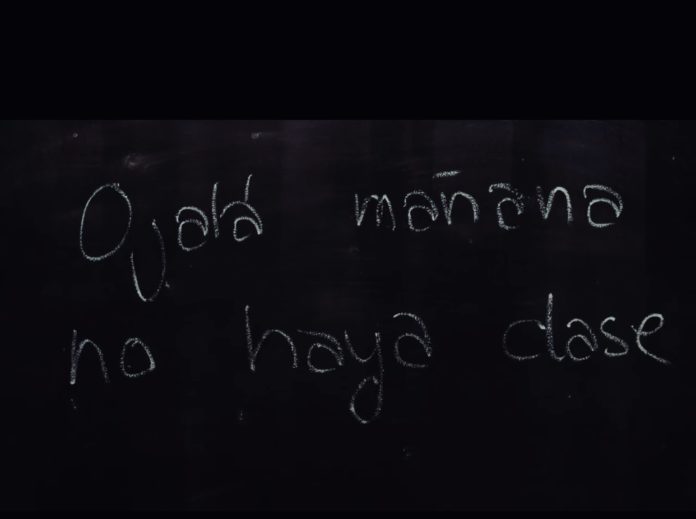 Ojalá mañana
no haya clase